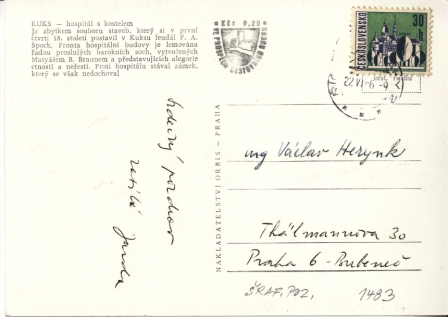 KUKS — hospitál s kostelem
Je zbytkem souboru staveb, který si v první
čtvrti 18. století postavil v Kuksu feudál F. A.
Špork. Fronta hospitální budovy je lemována
řadou proslulých barokních soch, vytvořených
Matyášem B. Braunem a představujících alegorie
ctností a neřestí. Proti hospitálu stával zámek,
který se však nedochoval
Kčs 0,20
VE PROSPĚCH
ČESKOSLOVENSKO
30
22 VI
srdečný pozdrav
zasílá Jarda
NAKLADATELSTVÍ ORBIS — PRAHA
ing Václav Herynk
Thálmannova 30
Praha 6 - Bubeneč
ŠRAF. POZ. 1483